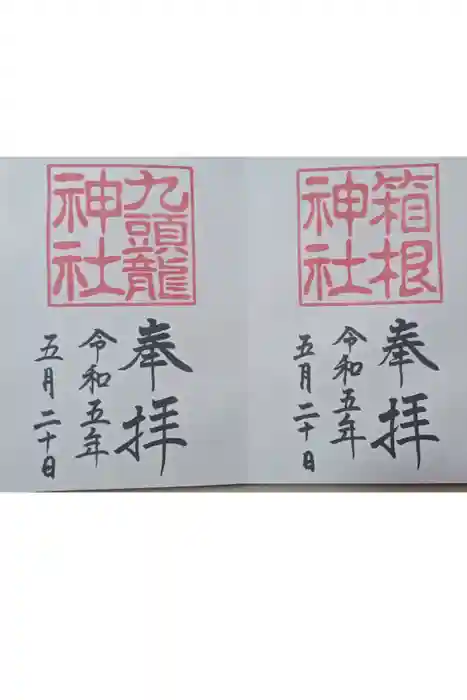 箱根
神社
奉拝
令和五年
五月二十日
九頭龍
神社
奉拝
令和五年
五月二十日